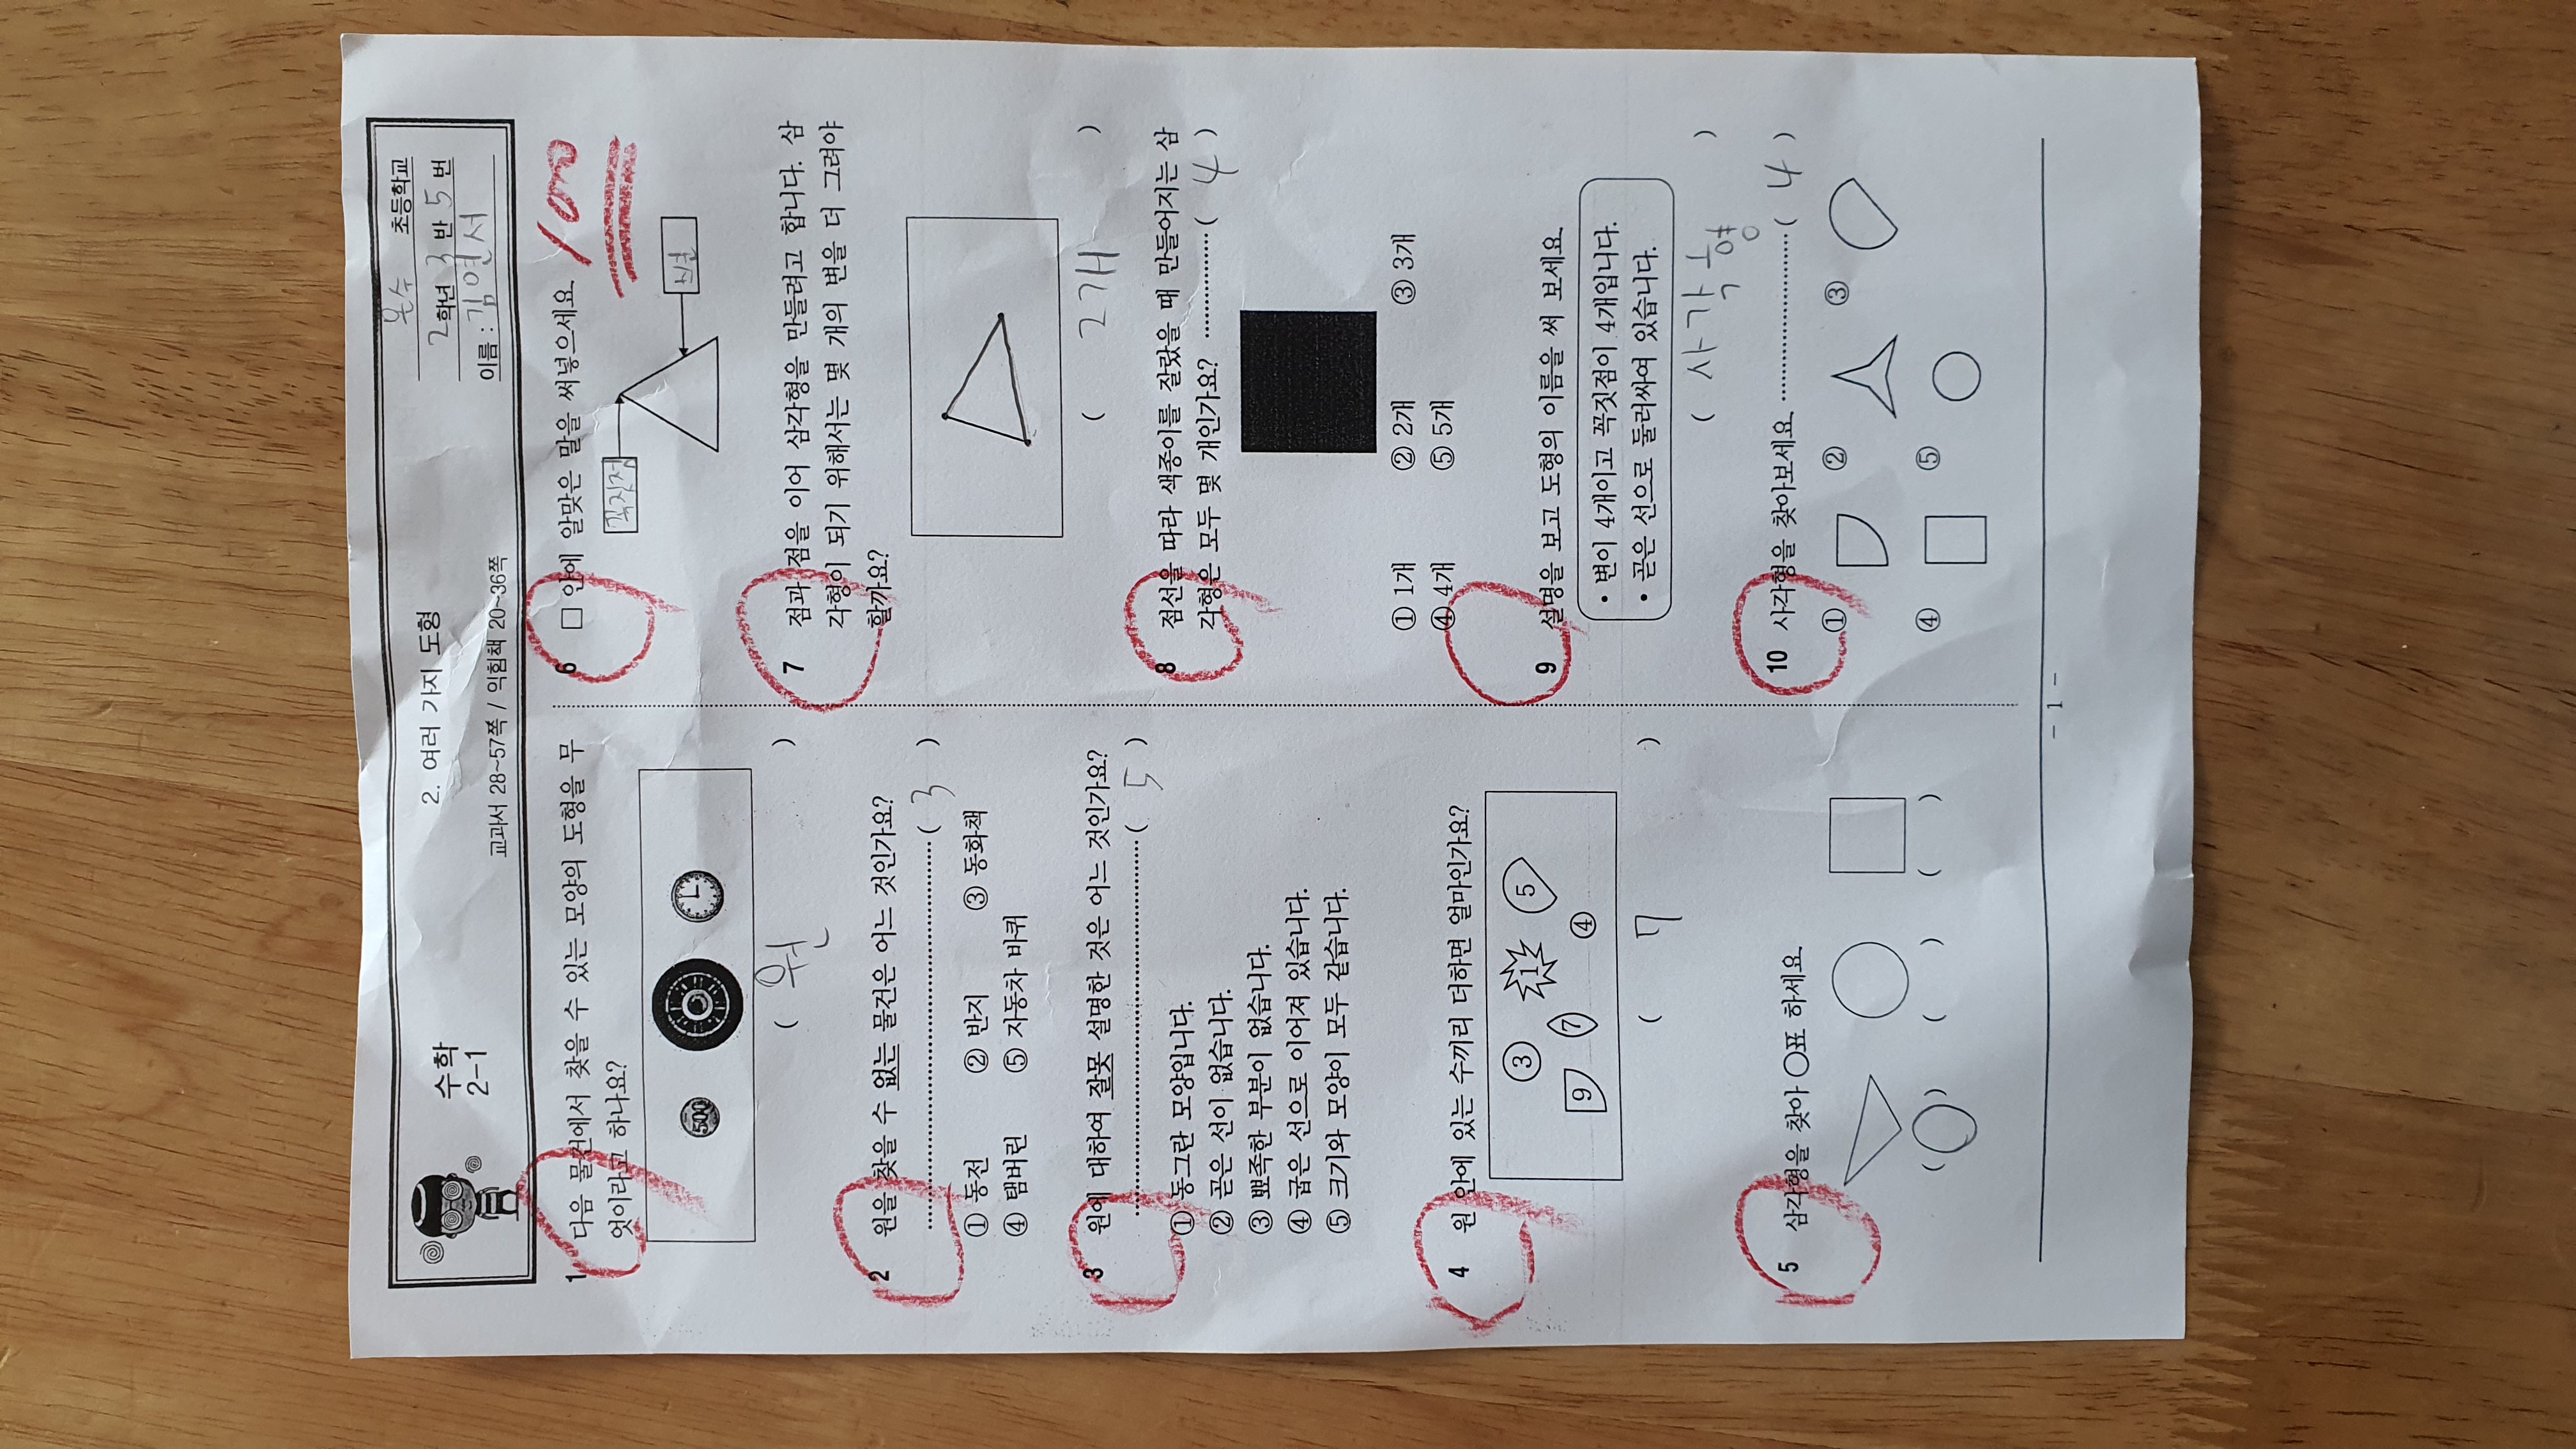 수학
2-1
2. 여러 가지 도형
교과서 28~57쪽 / 익힘책 20~36쪽
온수 초등학교
2학년 3 반 5 번
이름 : 김연서
1 다음 물건에서 찾을 수 있는 모양의 도형을 무
엇이라고 하나요?
500
( 원 )
2 원을 찾을 수 없는 물건은 어느 것인가요?
( 3 )
① 동전 ② 반지 ③ 동화책
④ 탬버린 ⑤ 자동차 바퀴
3 원에 대하여 잘못 설명한 것은 어느 것인가요?
( 5 )
① 동그란 모양입니다.
② 곧은 선이 없습니다.
③ 뾰족한 부분이 없습니다.
④ 굽은 선으로 이어져 있습니다.
⑤ 크기와 모양이 모두 같습니다.
4 원 안에 있는 수끼리 더하면 얼마인가요?
3 1 5
9 7 4
( 7 )
5 삼각형을 찾아 ○표 하세요.
(○) ( ) ( )
6 □ 안에 알맞은 말을 써넣으세요.
100
꼭짓점
변
7 점과 점을 이어 삼각형을 만들려고 합니다. 삼
각형이 되기 위해서는 몇 개의 변을 더 그려야
할까요?
( 2개 )
8 점선을 따라 색종이를 잘랐을 때 만들어지는 삼
각형은 모두 몇 개인가요? ( 4 )
① 1개 ② 2개 ③ 3개
④ 4개 ⑤ 5개
9 설명을 보고 도형의 이름을 써 보세요.
• 변이 4개이고 꼭짓점이 4개입니다.
• 곧은 선으로 둘러싸여 있습니다.
( 사각형 )
10 사각형을 찾아보세요. ( 4 )
① ② ③
④ ⑤
- 1 -